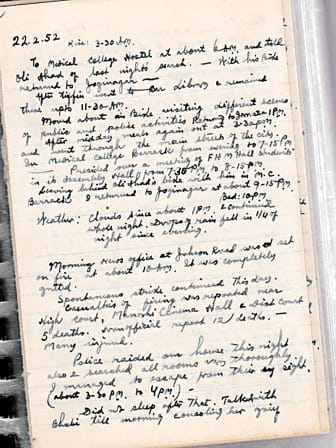 22.2.52 Rise: 3-30 A.M.
To Medical college Hostel at about 6 A.M. and tell
Oli Ahad of last night's search. — With his Bike
returned to Joginagar —
After tiffin went to Bar Library & remained
there upto 11-30 A.M.
Moved about on Bike visiting different scenes
of public and police activities. Return to room at 1 P.M.
After midday meals again out at 3-30 P.M.
and went through the main streets of the city. —
In Medical college Barrack from evening to 7-15 P.M.
Presided over a meeting of F H M Hall students'
in its assembly Hall from 7-30 P.M. to 8-15 P.M.
Leaving behind Oli Ahad's bike with him in M.C.
Barracks I returned to Joginagar at about 9-15 P.M.
Bed: 10 P.M.
Weather: Clouds since about 1 P.M. & continued
whole night. Drops of rain fall in 1/4 of
night since evening.
Morning News office at Johson Road was set
on fire at about 10 A.M. It was completely
gutted.
Spontaneous strike continued this day.
Casualties of firing was reported near
High court, Manoshi Cinema Hall & Dist court
5 deaths. Unofficial report 12 deaths. —
Many injured.
Police raided our house this night
also & searched all rooms very thoroughly.
I managed to escape from their sight.
(about 3-30 P.M. to 4 P.M.) —
Did not sleep after that. Talked with
Bhabi till morning consoling her